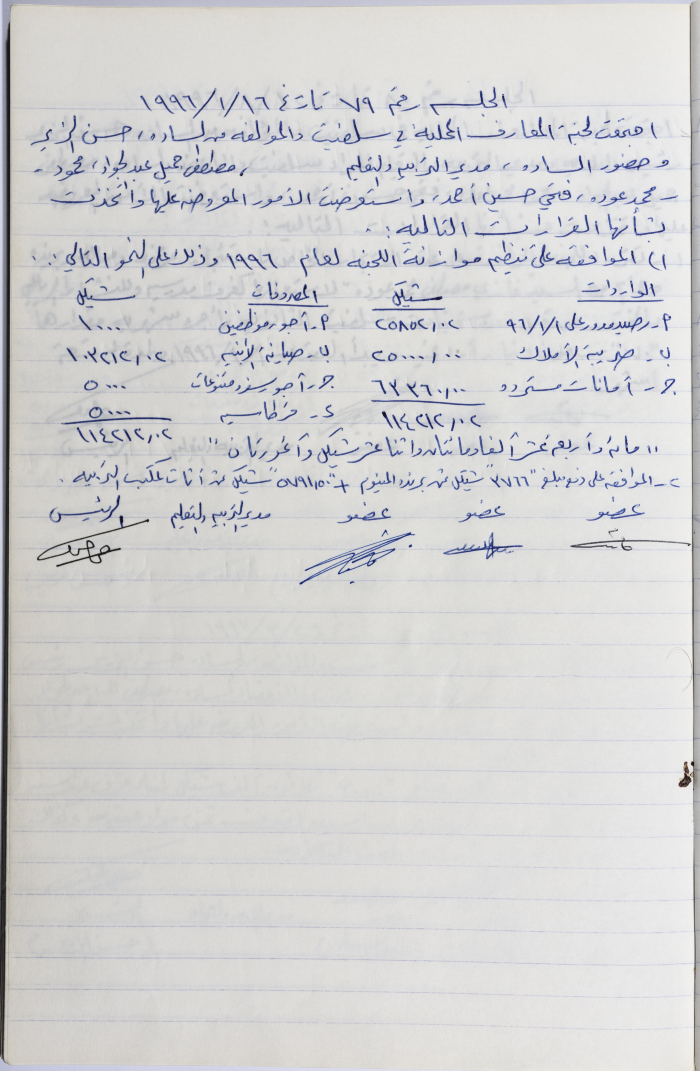 الجلسه رقم ٧٩ تاريخ ١٩٩٦/١/١٦
اجتمعت لجنة المعارف المحلية في سلفيت والمؤلفه من الساده، حسن الزير
وحضور الساده، مدير التربيه والتعليم ، مصطفى جميل عبد الجواد، محمود
محمد عوده، فتحي حسين أحمد، واستعرضت الأمور المعروضه عليها واتخذت
بشأنها القرارات التاليه:-
١) الموافقه على تنظيم موازنة اللجنه لعام ١٩٩٦ وذلك على النحو التالي:-
الواردات شيكل المصروفات شيكل
أ- رصيد مدور على ٩٦/١/١ ٢٥٨٥٢/٠٢ أ- أجور موظفين ١٠٠٠
ب- ضريبة الأملاك ٢٥٠٠٠/٠٠ ب- صيانه الأبنيه ١٠٣٢١٢/٠٢
جـ- أمانات مسترده ٦٣٣٦٠/٠٠ جـ- أجور سفر ومتنوعات ٥٠٠٠
١١٤٢١٢/٠٢ د- قرطاسيه ٥٠٠٠
١١٤٢١٢/٠٢
"مائة وأربعة عشر ألفا ومائتان واثنا عشر شيكل وآغورتان"
٢- الموافقه على دفع مبلغ "٣٧٦٦" شيكل ثمن المنيوم + "٥٧٩١/٥٠" شيكل ثمن أثاث لمكتب التربيه.
عضو عضو عضو مدير التربيه والتعليم الرئيس